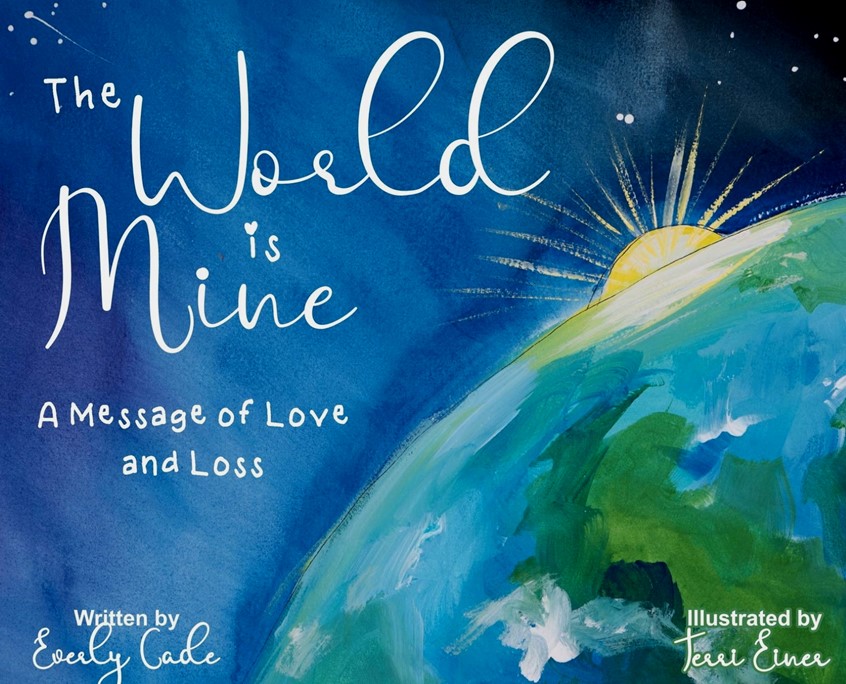 The
World
is
Mine
A Message of Love
and Loss
Written by
Everly Cade
Illustrated by
Terri Einer